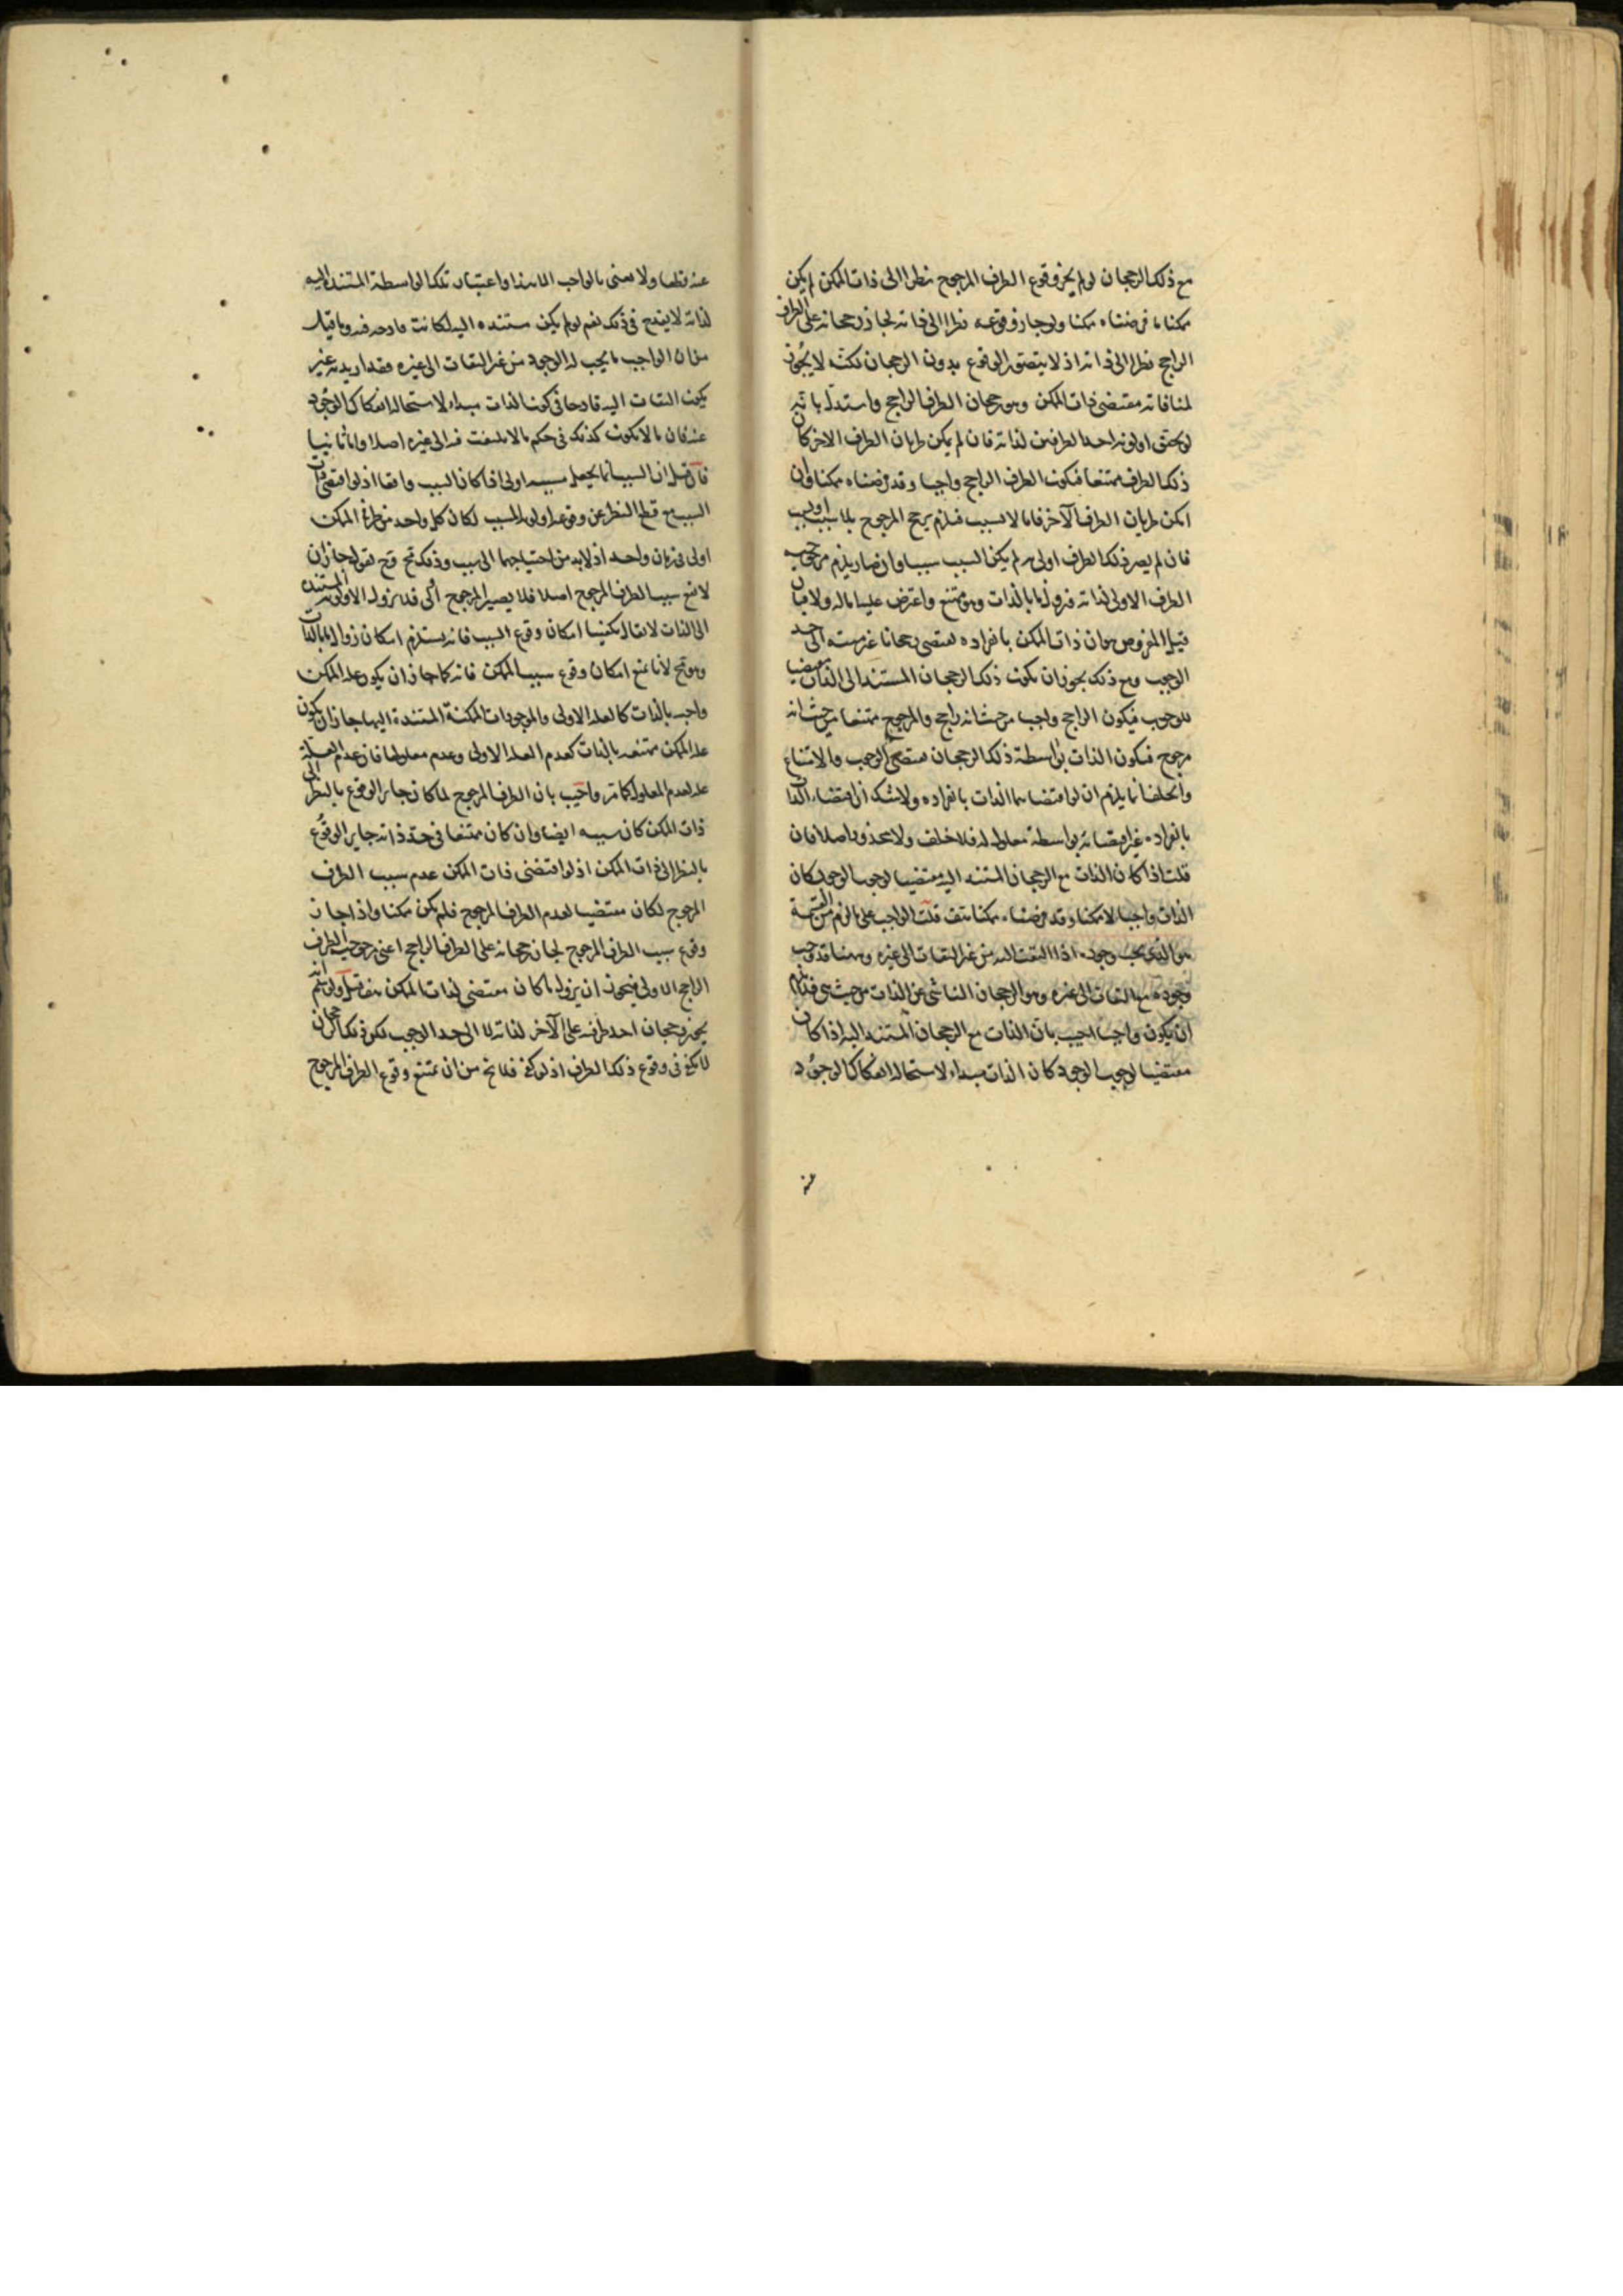 مع ذلك الرجحان لو لم يجز وقوع الطرف المرجوح نظرا الى ذات الممكن لم يكن
ممكنا ما فرضناه ممكنا ولو جاز وقوعه نظرا الى ذاته لجاز رجحانه على الطرف
الراجح نظرا الى ذاته اذ لا يتصور الوقوع بدون الرجحان لكنه لا يجوز
لمنافاته مقتضى ذات الممكن وهو رجحان الطرف الراجح واستدل بانه
لو تحقق اولوية احد الطرفين لذاته فان لم يمكن طريان الطرف الاخر كان
ذلك الطرف ممتنعا فيكون الطرف الراجح واجبا وقد فرضناه ممكنا وان
امكن طريان الطرف الآخر فاما لا لسبب فيلزم ترجح المرجوح بلا سبب او لسبب
فان لم يصر ذلك الطرف اولى به لم يكن السبب سببا وان صار يلزم مرجوحية
الطرف الاولى لذاته فيزول ما بالذات وهو ممتنع واعترض عليه اما اولا فبان
قيل المفروض هو ان ذات الممكن بانفراده يقتضى رجحانا غير منته الى حد
الوجوب ومع ذلك يجوز ان يكون ذلك الرجحان المستند الى الذات مقتضيا
للوجوب فيكون الراجح واجبا من حيث انه راجح والمرجوح ممتنعا من حيث انه
مرجوح فيكون الذات بواسطة ذلك الرجحان مقتضى الوجوب والامتناع
والخلف انما يلزم ان لو اقتضاهما الذات بانفراده ولا شك ان اقتضاء الذات
بانفراده غير اقتضائه بواسطة معلوله فلا خلف ولا محذور اصلا فان
قلت اذا كان الذات مع الرجحان المستند اليه مقتضيا لوجوب الوجود كان
الذات واجبا لا ممكنا وقد فرضناه ممكنا هف قلت الواجب على ما لزم من القسمة
هو الذى يجب وجوده اذا التفت اليه من غير التفات الى غيره وههنا قد وجب
وجوده مع التفات الى غيره وهو الرجحان الناشى عن الذات من حيث هى فلا يلزم
ان يكون واجبا اجيب بان الذات مع الرجحان المستند اليه اذا كان
مقتضيا لوجوب الوجود كان الذات مبداء لاستحالة انفكاك الوجود
عنه
عنه قطعا ولا معنى بالواجب الا هذا واعتبار تلك الواسطة المستندة اليه
لذاته لا يقدح فى ذلك نعم لو لم يكن مستنده اليه لكانت قادحة فيه وما قيل
من ان الواجب ما يجب له الوجود من غير التفات الى غيره فقد اريد به غير
يكون التفات اليه قادحا فى كون الذات مبداء لاستحالة انفكاك الوجود
عنه فان ما لا يكون كذلك فى حكم ما لا يلتفت فيه الى غيره اصلا واما ثانيا
فان قيل ان السبب انما يجعل مسببه اولى اذا كان السبب واقعا اذ لو اقتضى ذات
السبب مع قطع النظر عن وقوعه اولوية المسبب لكان كل واحد من طرفى الممكن
اولى فى زمان واحد اذ لا بد من احتياجهما الى سبب وذلك مح وح نقول جاز ان
لا يقع سبب الطرف المرجوح اصلا فلا يصير المرجوح اولى فلا يزول الاولوية المستندة
الى الذات لا يقال يكفينا امكان وقوع السبب فانه يستلزم امكان زوال ما بالذات
وهو مح لانا نمنع امكان وقوع سبب الممكن فانه كما جاز ان يكون علة الممكن
واجبه بالذات كالعلة الاولى والموجودات الممكنة المستندة اليها جاز ان يكون
علة الممكن ممتنعه بالذات كعدم العلة الاولى وعدم معلولها فان عدم العلة
علة لعدم المعلول كما مر واجيب بان الطرف المرجوح لما كان جايز الوقوع بالنظر الى
ذات الممكن كان سببه ايضا وان كان ممتنعا فى حد ذاته جايز الوقوع
بالنظر الى ذات الممكن اذ لو اقتضى ذات الممكن عدم سبب الطرف
المرجوح لكان مقتضيا لعدم الطرف المرجوح فلم يكن ممكنا واذا جاز
وقوع سبب الطرف المرجوح لجاز رجحانه على الطرف الراجح اعنى مرجوحية الطرف
الراجح الاولى فيجوز ان يزول ما كان مقتضى لذات الممكن هف قيل ولو تم انه لم
يجز رجحان احد طرفيه على الآخر لذاته لا الى حد الوجوب لكن ذلك الرجحان
لا يكفى فى وقوع ذلك الطرف اذ لو كفى فلا يخ من ان يمتنع وقوع الطرف المرجوح